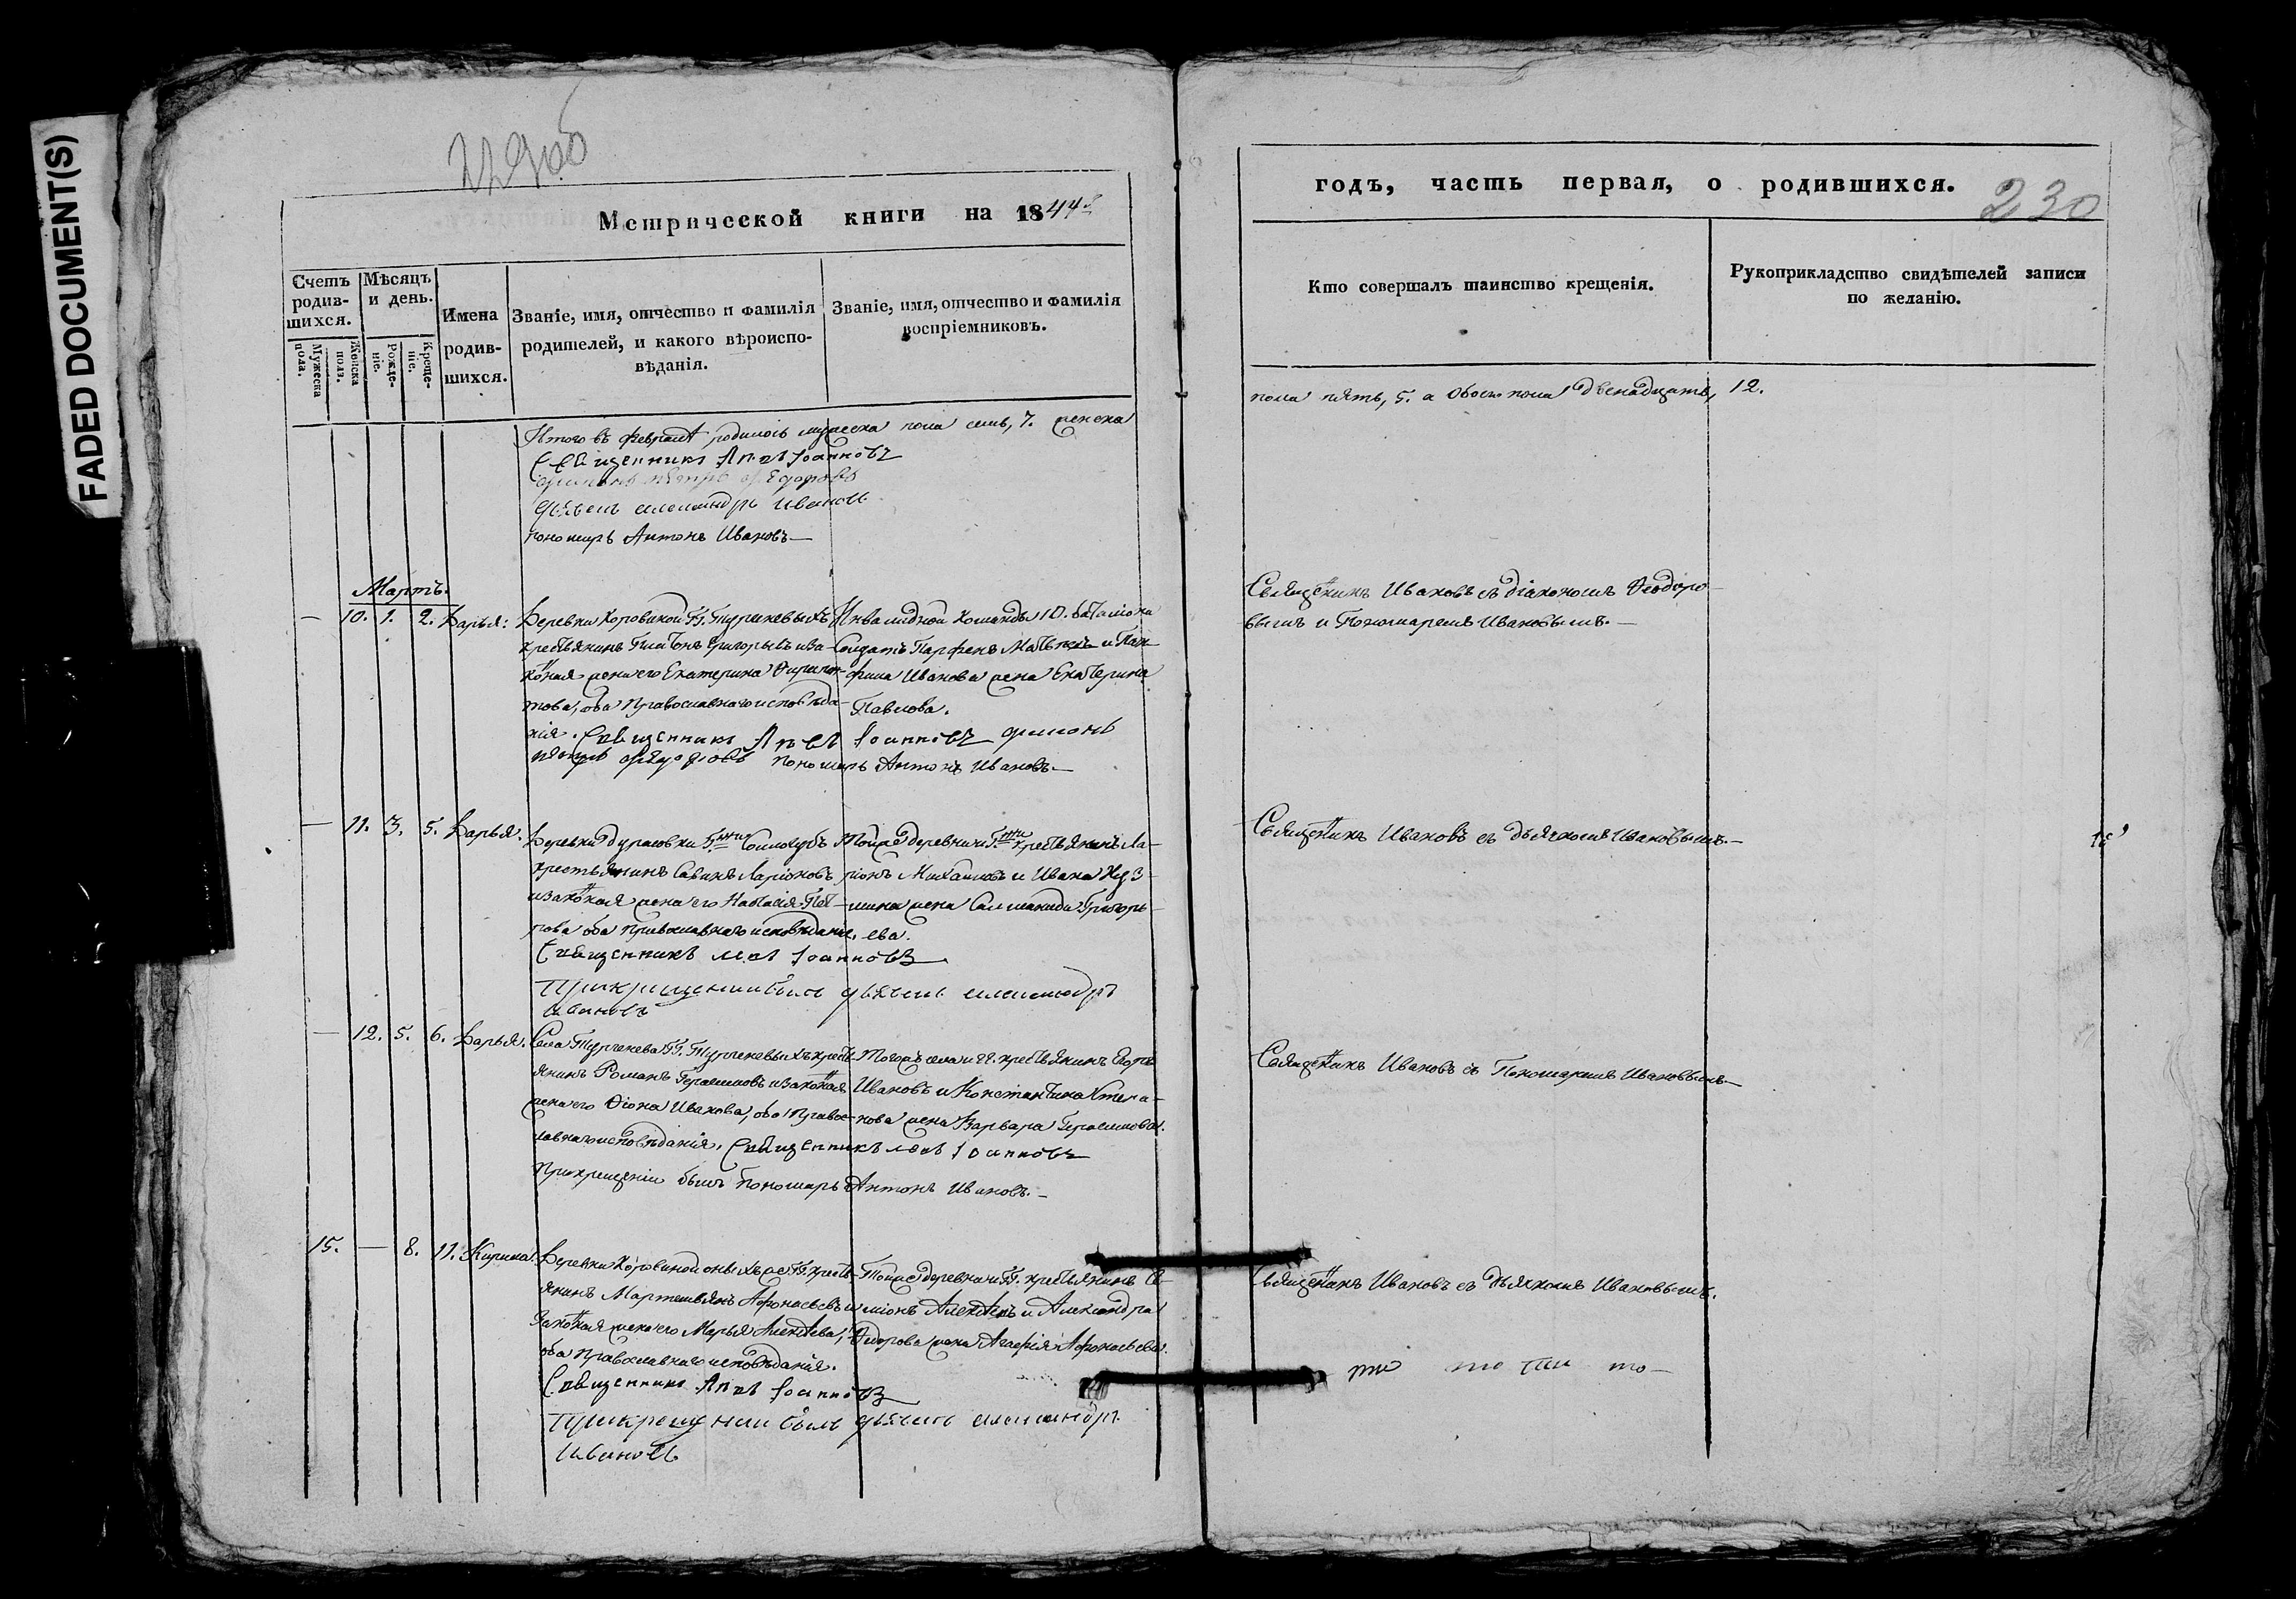 FADED DOCUMENT(S)
229об
Метрической книги на 1844й
годъ, часть первая, о родившихся.
230
Счетъ родив-
шихся.
Мужеска пола.
Женска пола.
Мѣсяцъ и день.
Рожде-
ніе.
Креще-
ніе.
Имена
родив-
шихся.
Званіе, имя, отчество и фамилія
родителей, и какого вѣроиспо-
вѣданія.
Званіе, имя, отчество и фамилія
воспріемниковъ.
Кто совершалъ таинство крещенія.
Рукоприкладство свидѣтелей записи
по желанію.
Итого въ февралѣ родилось мужеска пола семь, 7. женска
пола пять, 5. а обоего пола двенадцать, 12.
Священникъ Іоанновъ
Петръ Ѳедоровъ
дьячекъ александръ Ивановъ
пономарь Антонъ Ивановъ
Мартъ.
— 10. 1. 2. Дарья:
Деревни Коровиной Гг. Тургеневыхъ
крестьянинъ Платонъ Григорьевъ иза-
конная жена его Екатерина Филипон-
това, оба Православнаго исповѣда-
нія. Священникъ Іоанновъ
пономарь Антонъ Ивановъ
Инвалидной Команды 10. баталіона
Солдатъ Парфенъ Матвѣевъ и Пан-
фила Иванова жена Екатерина
Павлова.
Священникъ Ивановъ съ діакономъ Ѳеодоро-
вымъ и Пономаремъ Ивановымъ.
— 11. 3. 5. Дарья.
Деревни Дурасовки Гжи Сологубъ
крестьянинъ Савинъ Ларіоновъ
изаконная жена его Настасія Пет-
рова оба православнаго исповѣданія.
Священникъ Іоанновъ
При крещеніи былъ дьячекъ александръ
ивановъ
Тойже деревни и Гжи крестьянинъ Ла-
ріонъ Михайловъ и Ивана Куз-
мина жена Саломанида Григорь-
ева.
Священникъ Ивановъ съ дьячкомъ Ивановымъ.
— 12. 5. 6. Дарья.
Села Тургенева Гг. Тургеневыхъ кресть-
янинъ Романъ Герасимовъ изаконная
жена его Ѳіона Иванова, оба Правос-
лавнаго исповѣданія. Священникъ Іоанновъ
При крещеніи былъ Пономарь Антонъ Ивановъ.
Тогожъ села и гг. крестьянинъ Егоръ
Ивановъ и Константина Степа-
нова жена Варвара Герасимова.
Священникъ Ивановъ съ Пономаремъ Ивановымъ
15. — 8. 11. Кирила.
Деревни Коровиной оныхъ же Гг. кресть-
янинъ Мартемьянъ Афонасьевъ и
законная жена его Марья Алексѣева,
оба православнаго исповѣданія.
Священникъ Іоанновъ
При крещеніи былъ дьячекъ александръ
Ивановъ
Тойже деревни и Гг. крестьянинъ Се-
міонъ Алексѣевъ и Александра
Ѳедорова жена Агафія Афонасьева.
Священникъ Ивановъ съ дьячкомъ Ивановымъ.